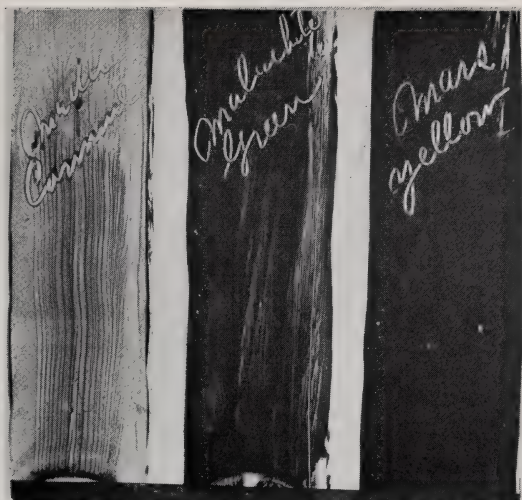 Carmine
Malachite
Green
Mars
yellow